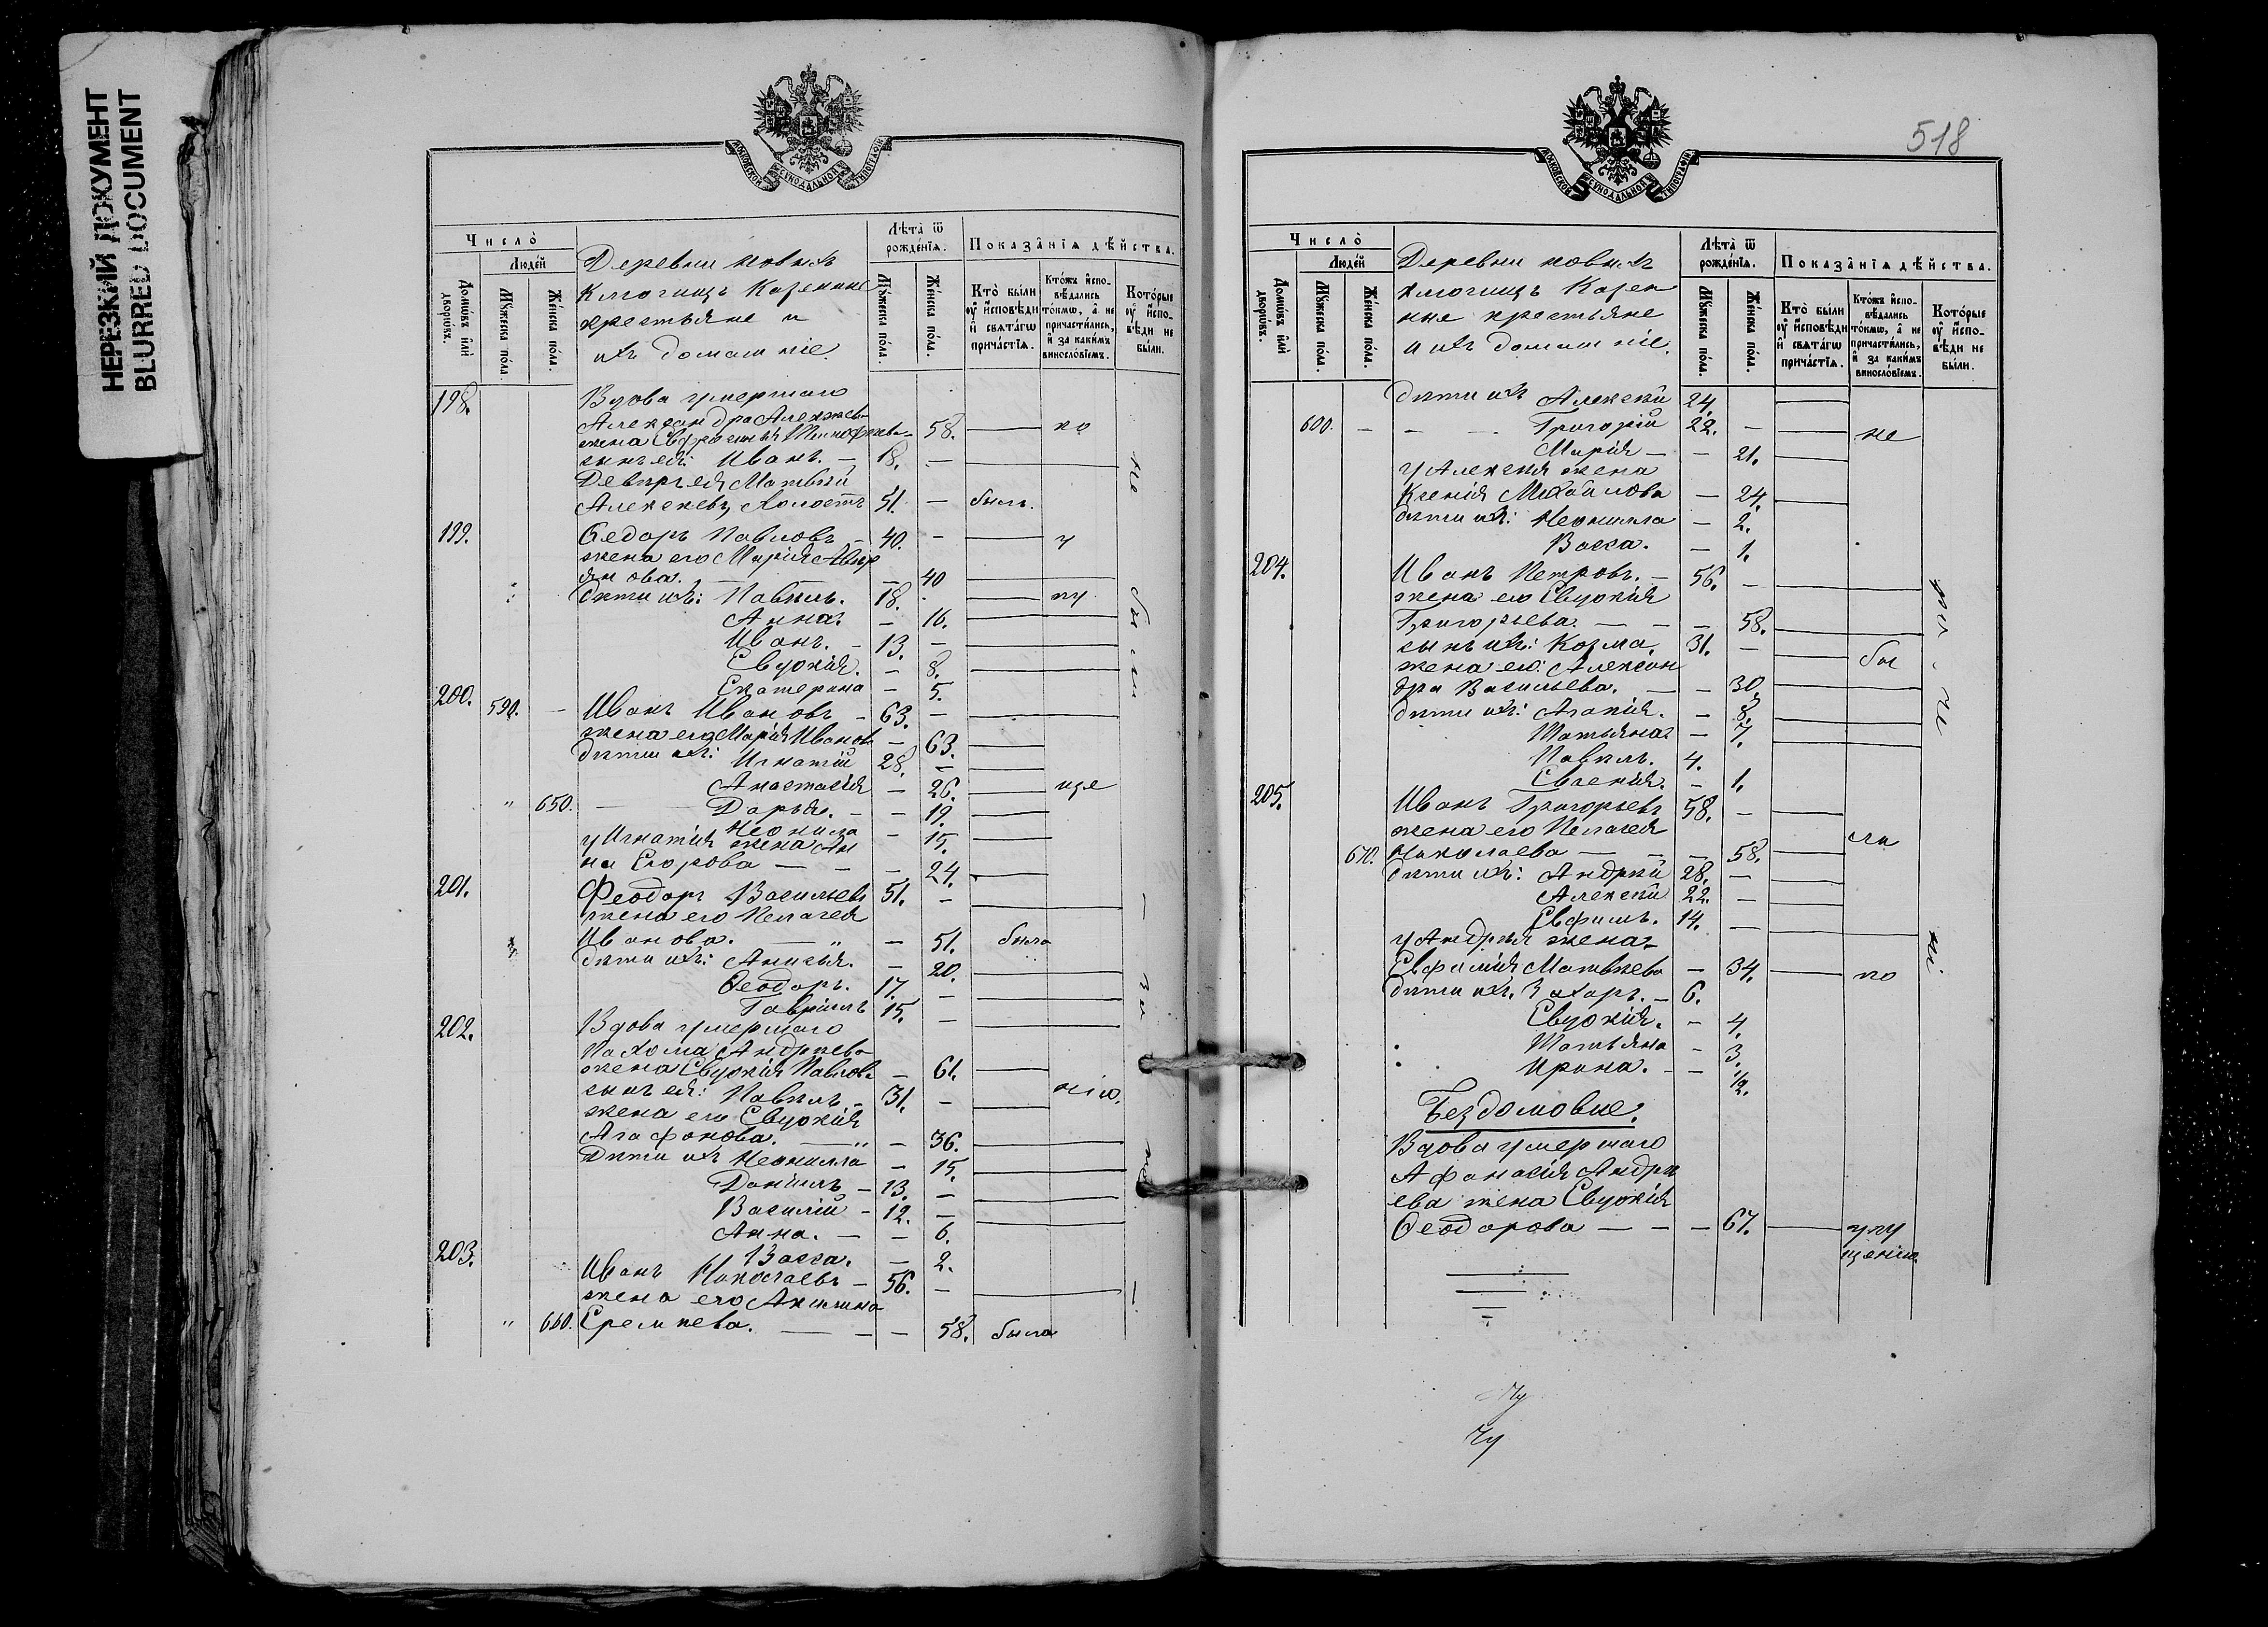 НЕРЕЗКИЙ ДОКУМЕНТ
BLURRED DOCUMENT
МОСКОВСКОЙ СѴНОДАЛЬНОЙ ТИПОГРАФІИ
Число̀
Люде́й
Домѡ́въ и҆лѝ дворѡ́въ.
Мꙋ́жеска по́ла.
Же́нска по́ла.
Деревни новыхъ
Ключищъ Казенные
крестьяне и
ихъ домашніе.
Лѣта̀ ѿ рожде́нїѧ.
Мꙋ́жеска по́ла.
Же́нска по́ла.
Показа̑нїѧ дѣ́йства.
Кто̀ бы́ли оу҆ и҆сповѣ́ди и҆ свѧта́гѡ причⷭ҇тїѧ.
Кто́жъ и҆спо-
вѣ́дались
то́кмѡ, а҆ не
причасти́лись,
и҆ за каки́мъ
винословїемъ.
Кото́рые
оу҆ и҆спо-
вѣ́ди не
бы́ли.
198. Вдова умершаго
Александра Алексѣева
жена Евфросинья — 58. — по
сынъ ея: Иванъ. — 18. —
Деверь ея Матвѣй
Алексѣевъ, Холостъ 51. — былъ.
199. Ѳедоръ Павловъ — 40. — у
жена его Марія Авер
янова. — 40
дѣти ихъ: Павелъ. 18. пу
Анна. — 16.
Иванъ. — 13. —
Евдокія. — 8.
Екатерина — 5.
200. 590. — Иванъ Ивановъ — 63. —
жена его Марія Иванова — 63.
дѣти ихъ: Игнатій 28. —
Анастасія — 26. — ще
" 650. — Дарья. — — 19.
Неонила — 15.
у Игнатія жена Ан
на Егорова — — — 24.
201. Феодоръ Васильевъ 51. —
жена его Пелагея
Иванова. — " — 51. была
дѣти ихъ: Анисья. — 20.
Ѳеодоръ. 17. —
Гавріилъ 15. —
202. Вдова умершаго
Пахома Андреева
жена Евдокія Павлова — 61.
сынъ ея: Павелъ — 31. — нію.
жена его Евдокія
Агафонова. — " — 36.
Дѣти ихъ Неонилла — 15.
Даніилъ — 13. —
Василій — 12. —
Анна. — — 6.
Васса. — 2.
203. Иванъ Николаевъ — 56. —
жена его Акилина
" 660. Еремеева. — — — 58. была
не были — за не —
518
МОСКОВСКОЙ СѴНОДАЛЬНОЙ ТИПОГРАФІИ
Число̀
Люде́й
Домѡ́въ и҆лѝ дворѡ́въ.
Мꙋ́жеска по́ла.
Же́нска по́ла.
Деревни новыхъ
Ключищъ Казен
ные крестьяне
и ихъ домашніе.
Лѣта̀ ѿ рожде́нїѧ.
Мꙋ́жеска по́ла.
Же́нска по́ла.
Показа̑нїѧ дѣ́йства.
Кто̀ бы́ли оу҆ и҆сповѣ́ди и҆ свѧта́гѡ прича́стїѧ.
Кто́жъ и҆спо-
вѣ́дались
то́кмѡ, а҆ не
причасти́лись,
и҆ за каки́мъ
винословїемъ.
Кото́рые
оу҆ и҆спо-
вѣ́ди не
бы́ли.
дѣти ихъ Алексѣй 24.
600. — — — Григорій 22. — не
Марія — — 21.
у Алексѣя жена
Ксенія Михайлова — 24.
дѣти ихъ: Неонилла — 2.
Васса. — 1.
204. Иванъ Петровъ. — 56. —
жена его Евдокія
Григорьева. — — — 58.
сынъ ихъ: Козма, 31. — бы
жена его: Алексан
дра Васильева. — — 30.
дѣти ихъ: Агапія. — 8.
Татьяна — 7.
Павелъ. 4.
Евгенія. — 1.
205. Иванъ Григорьевъ 58. —
жена его Пелагея
670. Николаева — — — 58. ли
дѣти ихъ: Андрей 28. —
Алексѣй 22. —
Евфимъ. 14. —
у Андрея жена
Евфимія Матвѣева — 34. — по
дѣти ихъ. Захаръ. — 6.
Евдокія. — 4.
Татьяна — 3.
Ирина. — — 1/2.
Бездомовые.
Вдова умершаго
Афанасія Андре
ева жена Евдокія
Ѳеодорова — — — 67. — упу
щенію.